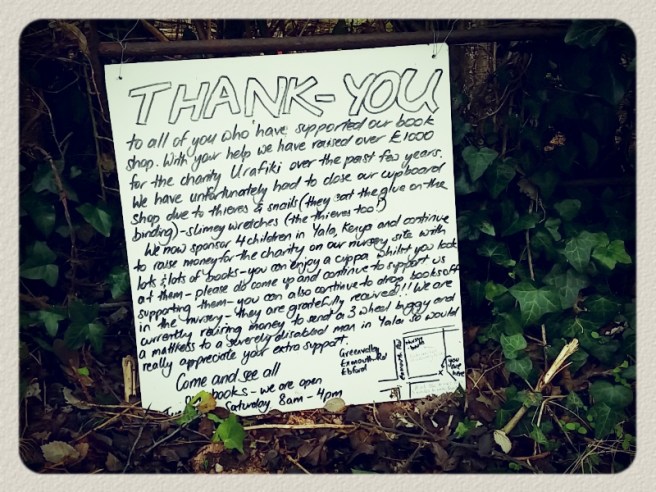 THANK-YOU
to all of you who have supported our book
shop. With your help we have raised over £1000
for the charity Urafiki over the past few years.
We have unfortunately had to close our cupboard
shop due to thieves & snails (they eat the glue on the
binding) - slimey wretches (the thieves too!)
We now sponsor 4 children in Yala, Kenya and continue
to raise money for the charity on our nursery site with
lots & lots of books - you can enjoy a cuppa whilst you look
at them - please do come up and continue to support us
supporting them - you can also continue to drop books off
in the nursery - they are gratefully received!! We are
currently raising money to send a 3 wheel buggy and
a mattress to a severely disabled man in Yala so would
really appreciate your extra support.
Come and see all
books - we are open
Saturday 8am - 4pm
Greenvalley
Exmouth Rd
Ebford
you
are
here